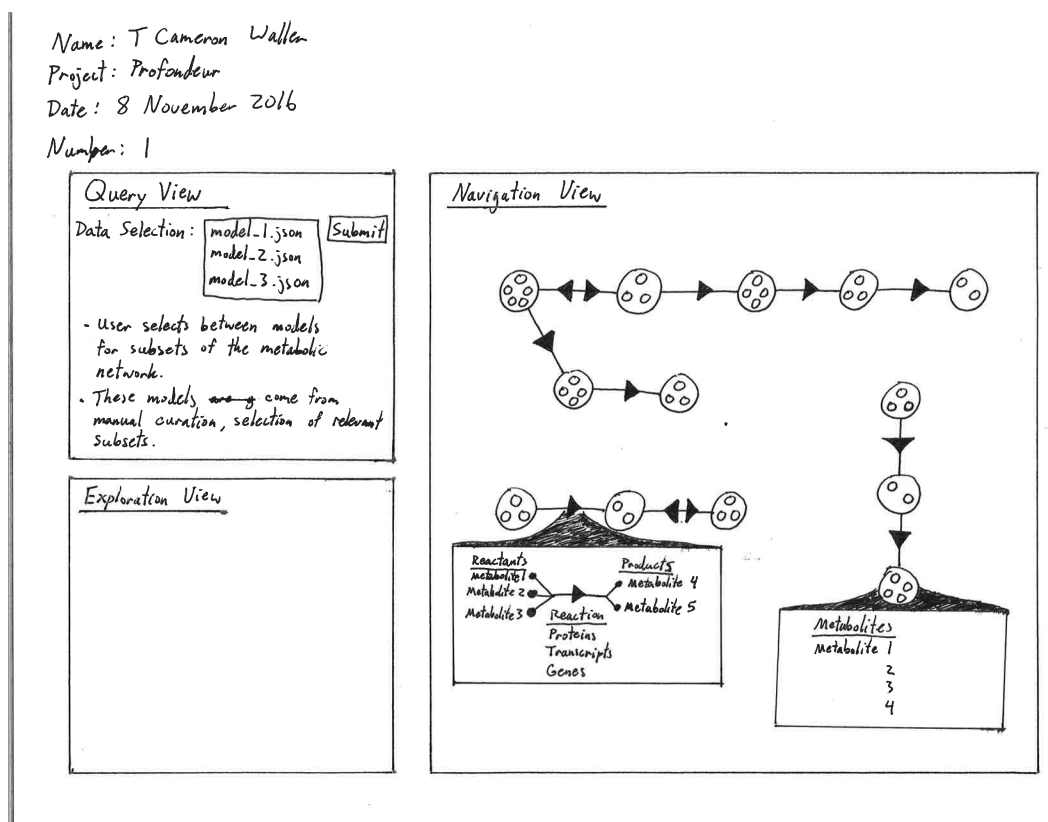 Name: T Cameron Waller
Project: Profondeur
Date: 8 November 2016
Number: 1
Query View
Data Selection:
model_1.json
model_2.json
model_3.json
Submit
- User selects between models
for subsets of the metabolic
network.
- These models come from
manual curation, selection of relevant
subsets.
Exploration View
Navigation View
Reactants
Metabolite 1
Metabolite 2
Metabolite 3
Products
Metabolite 4
Metabolite 5
Reaction
Proteins
Transcripts
Genes
Metabolites
Metabolite 1
2
3
4